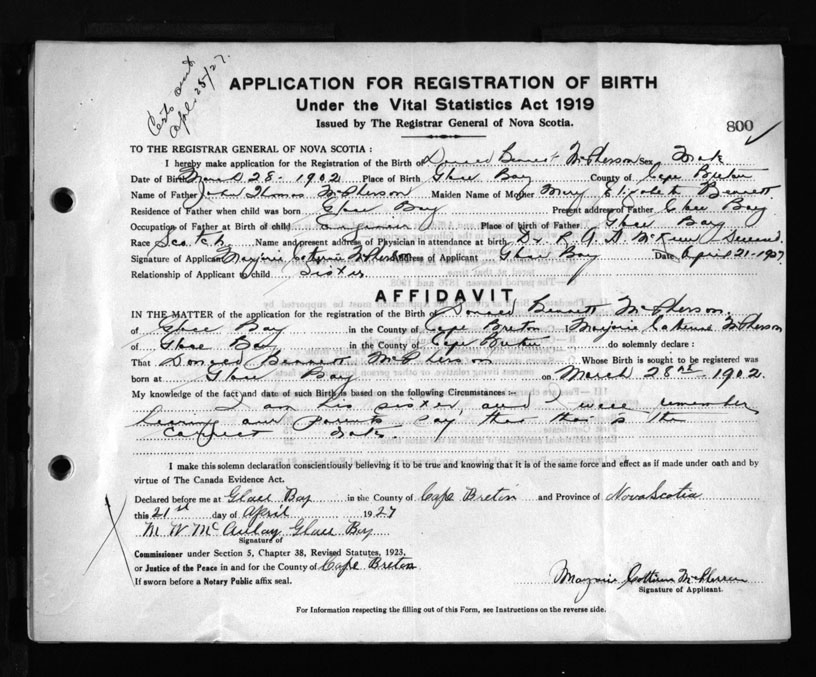 Certs out
Apl. 25/27.
APPLICATION FOR REGISTRATION OF BIRTH
Under the Vital Statistics Act 1919
Issued by The Registrar General of Nova Scotia.
800
TO THE REGISTRAR GENERAL OF NOVA SCOTIA:
I hereby make application for the Registration of the Birth of Donald Bennett McPherson Sex Male
Date of Birth March 28 - 1902 Place of Birth Glace Bay County of Cape Breton
Name of Father John Thomas McPherson Maiden Name of Mother Mary Elizabeth Bennett
Residence of Father when child was born Glace Bay Present address of Father Glace Bay
Occupation of Father at Birth of child engineer Place of birth of Father Glace Bay
Race Scotch Name and present address of Physician in attendance at birth Dr
Signature of Applicant Marjorie McPherson Address of Applicant Glace Bay Date April 21-1927
Relationship of Applicant to child Sister
AFFIDAVIT
IN THE MATTER of the application for the registration of the Birth of Donald Bennett McPherson.
of Glace Bay in the County of Cape Breton I Marjorie Catherine McPherson
of Glace Bay in the County of Cape Breton do solemnly declare:
That Donald Bennett McPherson Whose Birth is sought to be registered was
born at Glace Bay on March 28 1902.
My knowledge of the fact and date of such Birth is based on the following Circumstances:-
I am his sister, and I remember
hearing our parents say that this is the
correct date.
I make this solemn declaration conscientiously believing it to be true and knowing that it is of the same force and effect as if made under oath and by
virtue of The Canada Evidence Act.
Declared before me at Glace Bay in the County of Cape Breton and Province of Nova Scotia
this 21st day of April 1927
M W McAulay Glace Bay
Signature of
Commissioner under Section 5, Chapter 38, Revised Statutes, 1923,
or Justice of the Peace in and for the County of Cape Breton
If sworn before a Notary Public affix seal.
Marjorie McPherson
Signature of Applicant.
For Information respecting the filling out of this Form, see Instructions on the reverse side.